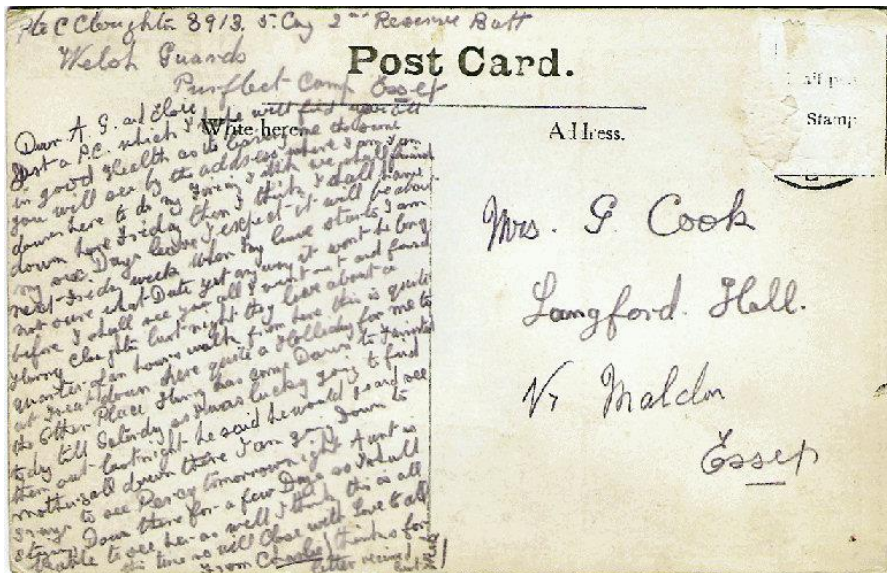 Pte C Cloughton 8913. 5. Coy 2nd Reserve Batt
Welsh Guards
Purfleet Camp Essex
Post Card.
Write here
Address.
Stamp
Dear A. G. and Elsie
Just a P.C. which I hope will find you all
in good Health as it leaves me the same
you will see by the address where I am I am
down here to do my Firing I think we shall finish
down here Friday then I think I shall have
my six Days leave I expect it will be about
next Friday week when my leave starts I am
not sure what Date yet any way it wont be long
before I shall see you all I went out and found
Harry Cloughton last night they live about a
quarter of an hours walk from here this is quite
a treat down here quite a Holleday for me to
the other Place Harry has gone Down to
to day till Saturday so I was lucky going to find
them out last night he said he would and see
mother all down there I am going down to
Grays to see Percy tomorrow night Aunt is
staying Down there for a few Days so I shall
be able to see her as well I think this is all
this time so will Close with Love to all
from Charlie thanks for
letter received
Mrs. G. Cook
Langford. Hall.
Nr Maldon
Essex